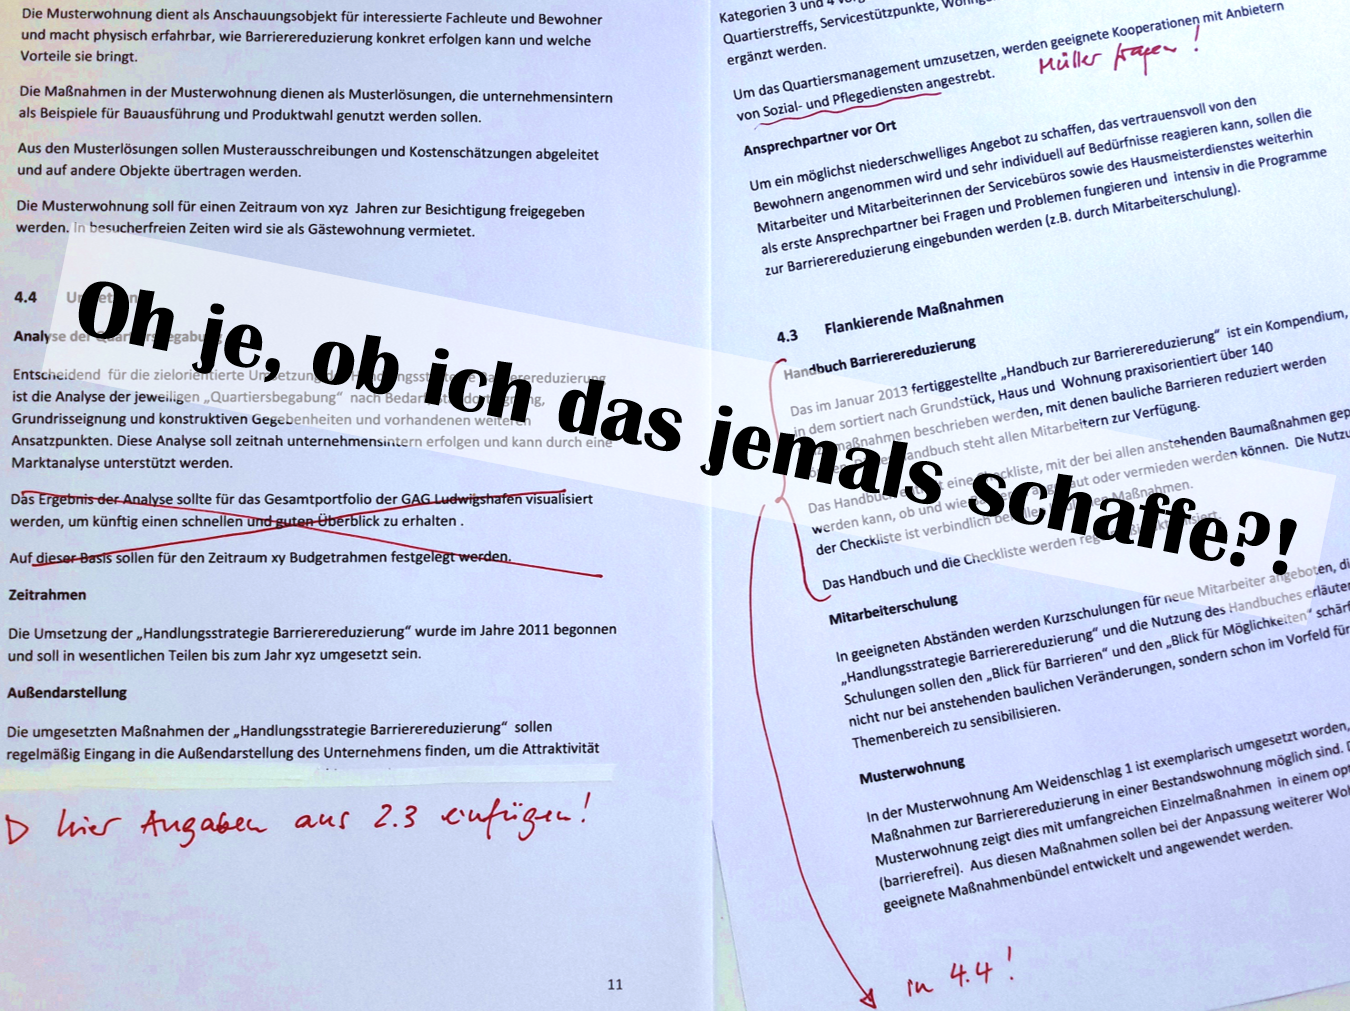 Die Musterwohnung dient als Anschauungsobjekt für interessierte Fachleute und Bewohner
und macht physisch erfahrbar, wie Barrierereduzierung konkret erfolgen kann und welche
Vorteile sie bringt.
Die Maßnahmen in der Musterwohnung dienen als Musterlösungen, die unternehmensintern
als Beispiele für Bauausführung und Produktwahl genutzt werden sollen.
Aus den Musterlösungen sollen Musterausschreibungen und Kostenschätzungen abgeleitet
und auf andere Objekte übertragen werden.
Die Musterwohnung soll für einen Zeitraum von xyz Jahren zur Besichtigung freigegeben
werden. In besucherfreien Zeiten wird sie als Gästewohnung vermietet.
4.4
Analyse der
Entscheidend für die zielorientierte
ist die Analyse der jeweiligen „Quartiersbegabung“ nach
Grundrisseignung und konstruktiven Gegebenheiten und vorhandenen weiteren
Ansatzpunkten. Diese Analyse soll zeitnah unternehmensintern erfolgen und kann durch eine
Marktanalyse unterstützt werden.
Das Ergebnis der Analyse sollte für das Gesamtportfolio der GAG Ludwigshafen visualisiert
werden, um künftig einen schnellen und guten Überblick zu erhalten .
Auf dieser Basis sollen für den Zeitraum xy Budgetrahmen festgelegt werden.
Zeitrahmen
Die Umsetzung der „Handlungsstrategie Barrierereduzierung“ wurde im Jahre 2011 begonnen
und soll in wesentlichen Teilen bis zum Jahr xyz umgesetzt sein.
Außendarstellung
Die umgesetzten Maßnahmen der „Handlungsstrategie Barrierereduzierung“ sollen
regelmäßig Eingang in die Außendarstellung des Unternehmens finden, um die Attraktivität
hier Angaben aus 2.3 einfügen!
11
Oh je, ob ich das jemals schaffe?!
Kategorien 3 und 4
Quartierstreffs, Servicestützpunkte,
ergänzt werden.
Um das Quartiersmanagement umzusetzen, werden geeignete Kooperationen mit Anbietern
von Sozial- und Pflegediensten angestrebt.
Müller fragen!
Ansprechpartner vor Ort
Um ein möglichst niederschwelliges Angebot zu schaffen, das vertrauensvoll von den
Bewohnern angenommen wird und sehr individuell auf Bedürfnisse reagieren kann, sollen die
Mitarbeiter und Mitarbeiterinnen der Servicebüros sowie des Hausmeisterdienstes weiterhin
als erste Ansprechpartner bei Fragen und Problemen fungieren und intensiv in die Programme
zur Barrierereduzierung eingebunden werden (z.B. durch Mitarbeiterschulung).
4.3 Flankierende Maßnahmen
Handbuch Barrierereduzierung
Das im Januar 2013 fertiggestellte „Handbuch zur Barrierereduzierung“ ist ein Kompendium,
in dem sortiert nach Grundstück, Haus und Wohnung praxisorientiert über 140
beschrieben werden, mit denen bauliche Barrieren reduziert werden
Handbuch steht allen Mitarbeitern zur Verfügung.
Das Handbuch Checkliste, mit der bei allen anstehenden Baumaßnahmen
werden kann, ob und oder vermieden werden können. Die
der Checkliste ist verbindlich bei Maßnahmen.
Das Handbuch und die Checkliste werden
Mitarbeiterschulung
In geeigneten Abständen werden Kurzschulungen für neue Mitarbeiter angeboten,
„Handlungsstrategie Barrierereduzierung“ und die Nutzung des Handbuches
Schulungen sollen den „Blick für Barrieren“ und den „Blick für Möglichkeiten“
nicht nur bei anstehenden baulichen Veränderungen, sondern schon im Vorfeld für
Themenbereich zu sensibilisieren.
Musterwohnung
In der Musterwohnung Am Weidenschlag 1 ist exemplarisch umgesetzt worden,
Maßnahmen zur Barrierereduzierung in einer Bestandswohnung möglich sind.
Musterwohnung zeigt dies mit umfangreichen Einzelmaßnahmen in einem
(barrierefrei). Aus diesen Maßnahmen sollen bei der Anpassung weiterer
geeignete Maßnahmenbündel entwickelt und angewendet werden.
in 4.4!